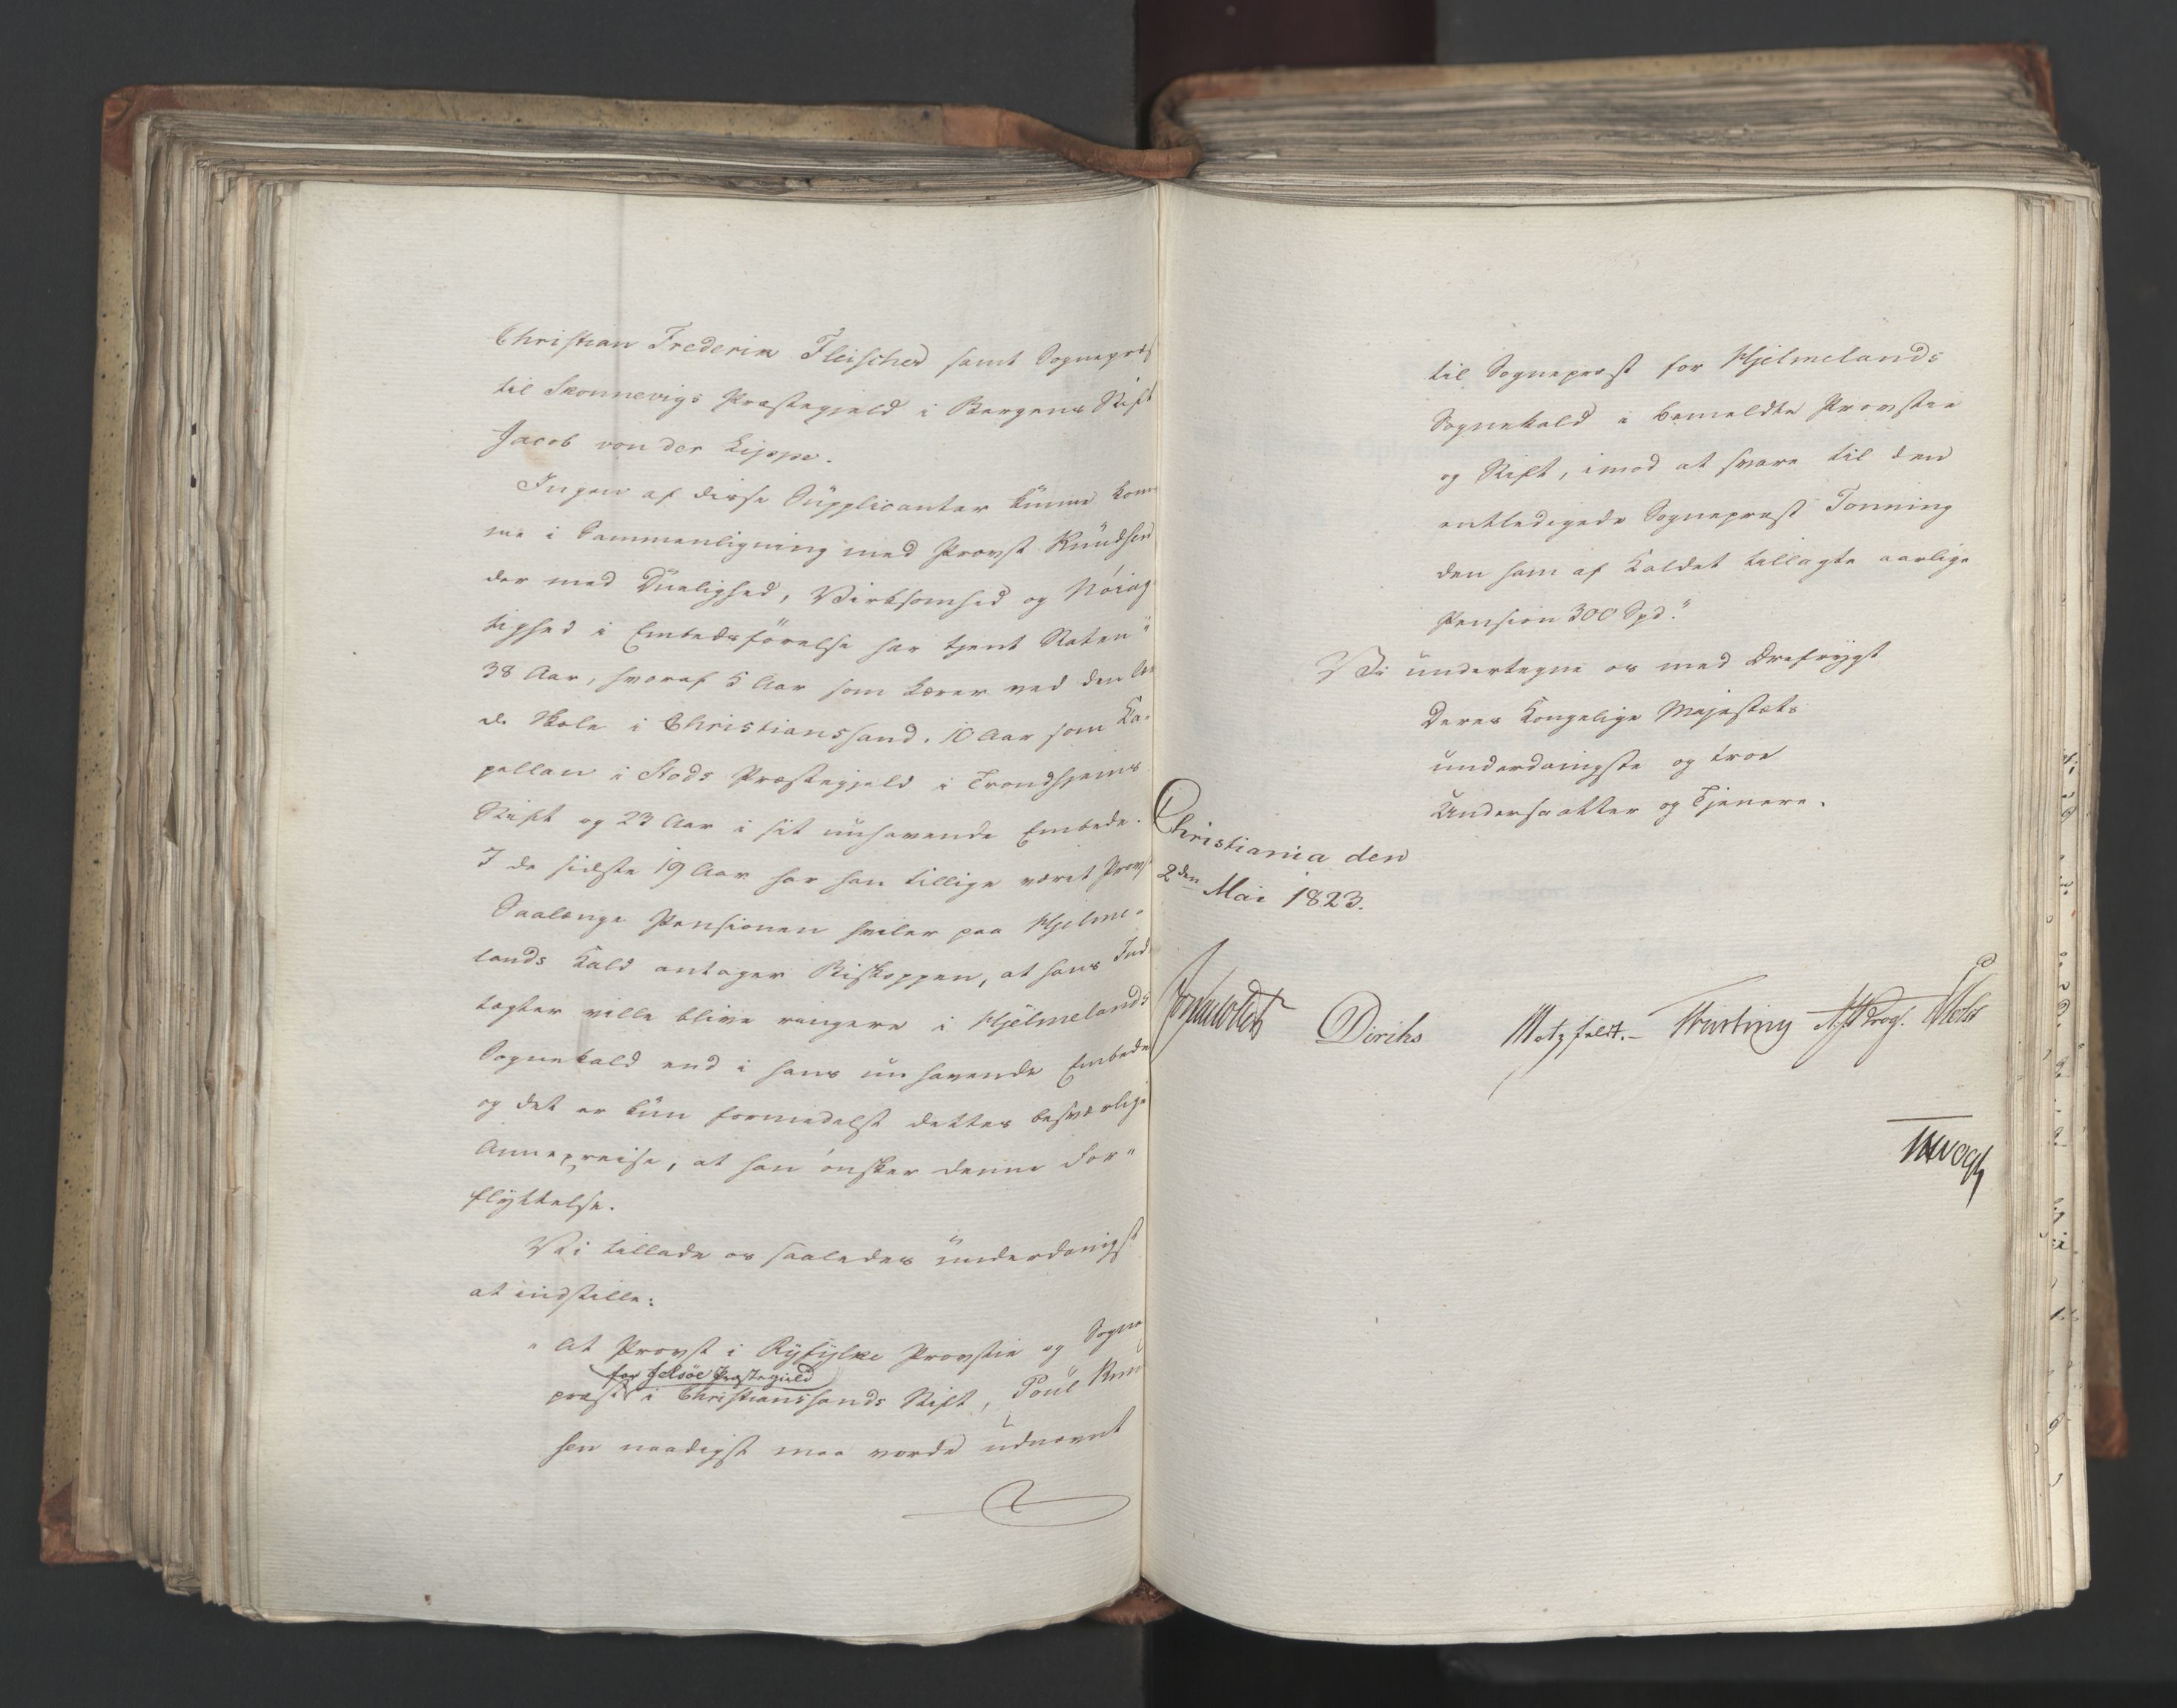 Christian Frederik Fleischer samt Sognepræst
til Skonnevigs Præstegjeld i Bergens Stift
Jacob von der Lippe.
Ingen af disse Supplicanter kunne kom-
me i Sammenligning med Provst Knudsen
der med Duelighed, Virksomhed og Nöiag
tighed i Embedsförelse har tjent Staten
38 Aar, hvoraf 5 Aar som Lærer ved den lær
de Skole i Christianssand, 10 Aar som Ka-
pellan i Stods Præstegjeld i Trondhjems
Stift og 23 Aar i sit nuhavende Embede.
I de sidste 19 Aar har han tillige været Provst
Saalænge Pensionen hviler paa Hjelme-
lands Kald antager Biskoppen, at hans Ind-
tægter ville blive ringere i Hjelmelands
Sognekald end i hans nuhavende Embede
og det er kun formedelst dettes besværlige
Annexreise, at han önsker denne For-
flyttelse.
Vi tillade os saaledes underdanigst
at indstille:
"At Provst i Ryfylke Provstie og Sogne
for Jelsöe Præstegield
præst i Christianssands Stift, Poul Knud
sen naadigst maa vorde udnævnt
til Sognepræst for Hjelmelands
Sognekald i bemeldte Provstie
og Stift, imod at svare til den
entledigede Sognepræst Tonning
den ham af Kaldet tillagte aarlige
Pension 300 Spd."
Vi undertegne os med Ærefrygt
Deres Kongelige Majestæts
underdanigste og troe
Undersaatter og Tjenere.
Christiania den
2den Mai 1823.
Diriks Motzfeldt.